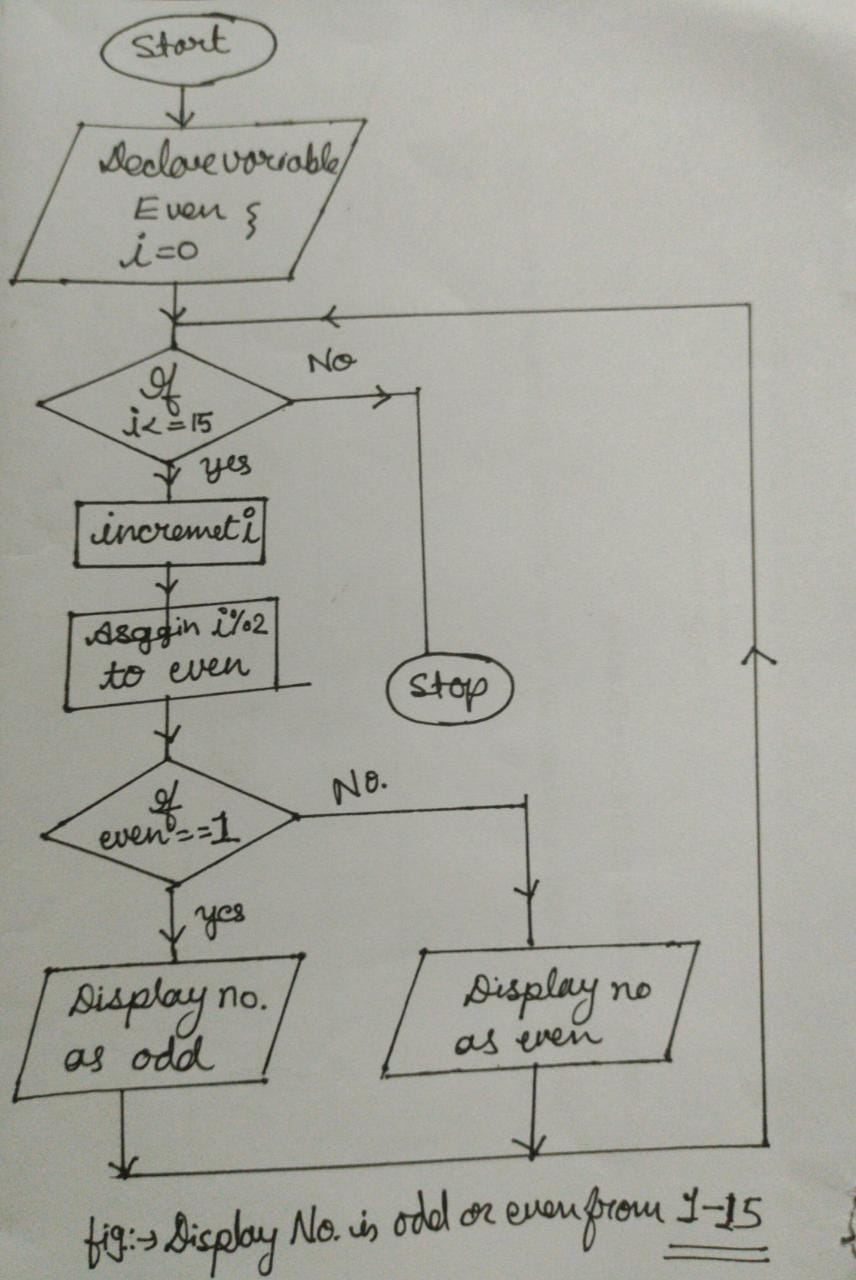 Start
Declare variable
Even {
i=0
If
i<=15
No
yes
incremet i
Asggin i%2
to even
Stop
If
even==1
No.
yes
Display no.
as odd
Display no
as even
fig:→ Display No. is odd or even from 1-15